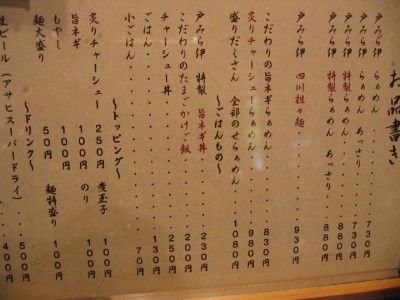 お品書き
戸みら伊 らぁめん・・・730円
戸みら伊 らぁめん あっさり・・・730円
戸みら伊 特製らぁめん・・・880円
戸みら伊 特製らぁめん あっさり・・・880円
戸みら伊 四川担々麺・・・930円
こだわりの旨ネギらぁめん・・・830円
炙りチャーシューらぁめん・・・980円
盛りだくさん 全部のせらぁめん・・・1080円
〜ごはんもの〜
戸みら伊 特製 旨ネギ丼・・・230円
こだわりのたまごかけご飯・・・200円
チャーシュー丼・・・250円
ごはん・・・130円
小ごはん・・・70円
〜トッピング〜
炙りチャーシュー 250円 煮玉子 100円
旨ネギ 100円 のり 100円
もやし 100円
麺大盛り 50円 麺特盛り 100円
〜ドリンク〜
生ビール(アサヒスーパードライ) 500円
400円